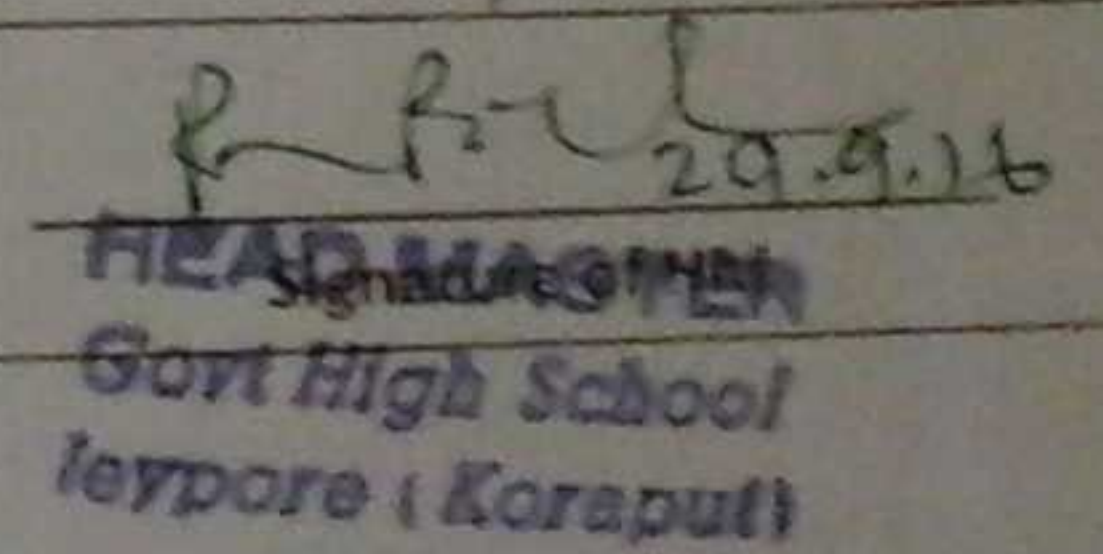 29.9.16
HEAD MASTER
Signature of
Govt High School
Jeypore (Koraput)